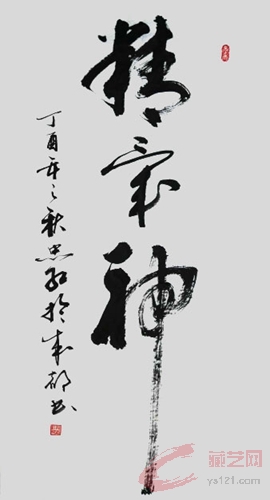 精氣神
丁酉年之秋忠於成都书
藏艺网
ys121.com